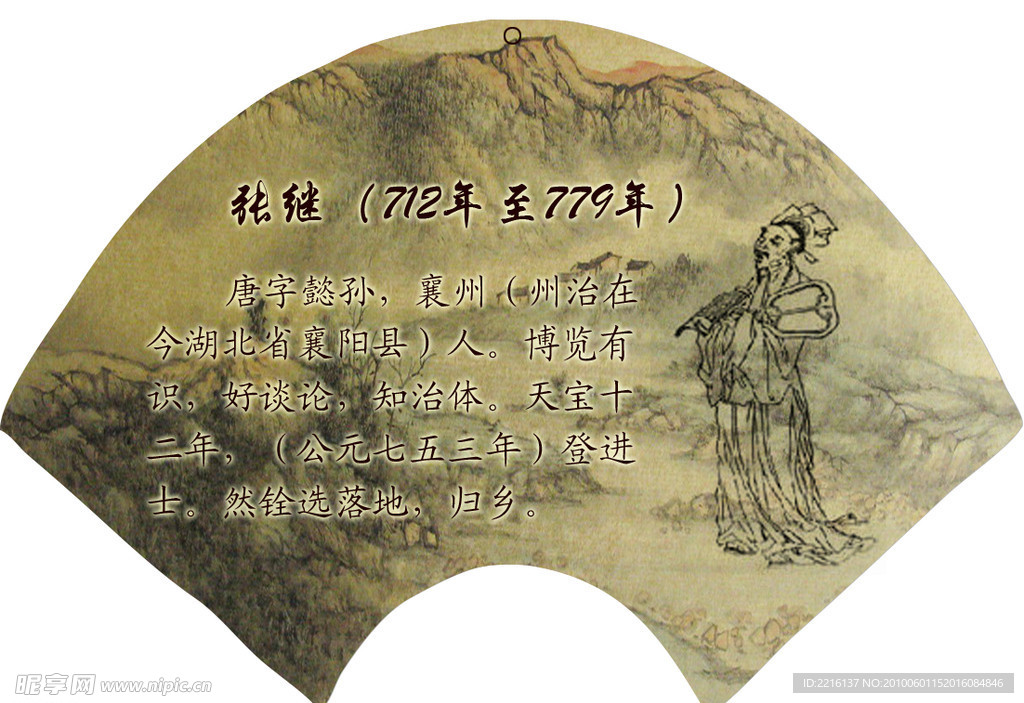 张继（712年 至779年）
唐字懿孙，襄州（州治在
今湖北省襄阳县）人。博览有
识，好谈论，知治体。天宝十
二年，（公元七五三年）登进
士。然铨选落地，归乡。
昵享网 www.nipic.cn
ID:2216137 NO:20100601152016084846